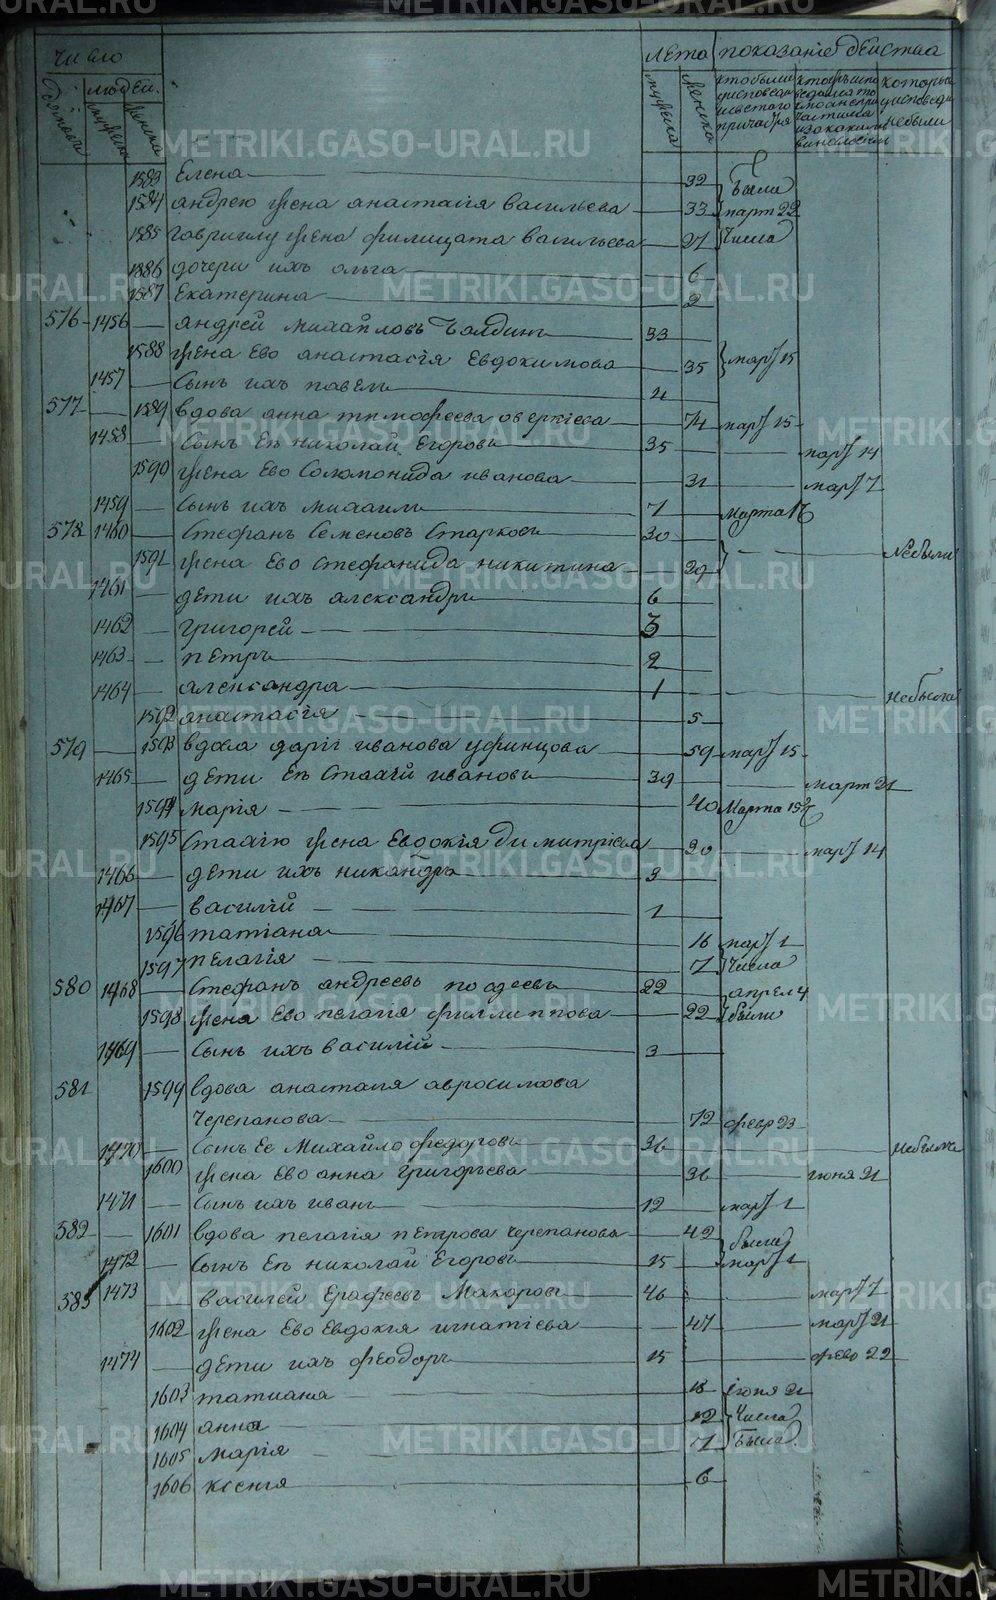 число
лета показаніе действа
людей
дворовъ
мужеска
женска
мужеска
женска
которые
исповеди
небыли
1583 Елена 32 были
1584 андрею жена анастасія васильева 33 март 22
1585 гавриилу жена филицата васильева 27 числа
1586 дочери ихъ ольга 6
1587 Екатерина 2
576 1456 андрей михайловъ 33
1588 жена Ево анастасія Евдокимова 35 март 15
1457 Сынъ ихъ павелъ 4
577 1589 вдова анна тимофеева оверкіева 74 март 15
1458 Сынъ Ея николай Егоровъ 35 март 14
1590 жена Ево Соломонида иванова 31 март 7
1459 Сынъ ихъ михаилъ 7 марта 17
578 1460 Стефанъ Семеновъ Старковъ 30
1591 жена Ево Стефанида никитина 29 Небыли
1461 дети ихъ александръ 6
1462 григорей 3
1463 петръ 2
1464 александра 1 небыла
1592 анастасія 5
579 1593 вдова дарія иванова уфинцова 59 март 15
1465 дети Ея Стахий ивановъ 39 март 21
1594 марія 40 Марта 15
1595 Стахію жена Евдокія Димитріева 30 март 14
1466 дети ихъ никандръ 3
1467 василій 1
1596 татіана 16 март 1
1597 пелагія 7 числа
580 1468 Стефанъ андреевъ 22 апрел 4
1598 жена Ево пелагія филлиппова 22 были
1469 Сынъ ихъ василій 3
581 1599 вдова анастасія
Черепанова 72 февр 23
1470 Сынъ Ее Михайло федоровъ 36 небылъ
1600 жена Ево анна григорьева 36 іюня 21
1471 Сынъ ихъ иванъ 12 март 1
582 1601 вдова пелагія петрова черепанова 42 были
1472 Сынъ Ея николай Егоровъ 15 март 1
583 1473 василей Ерафеевъ Макаровъ 46 март 7
1602 жена Ево Евдокія игнатіева 47 март 21
1474 дети ихъ феодоръ 15 февр 22
1603 татиана 18 іюня 21
1604 анна 12 числа
1605 марія 7 были
1606 ксенія 6
METRIKI.GASO-URAL.RU